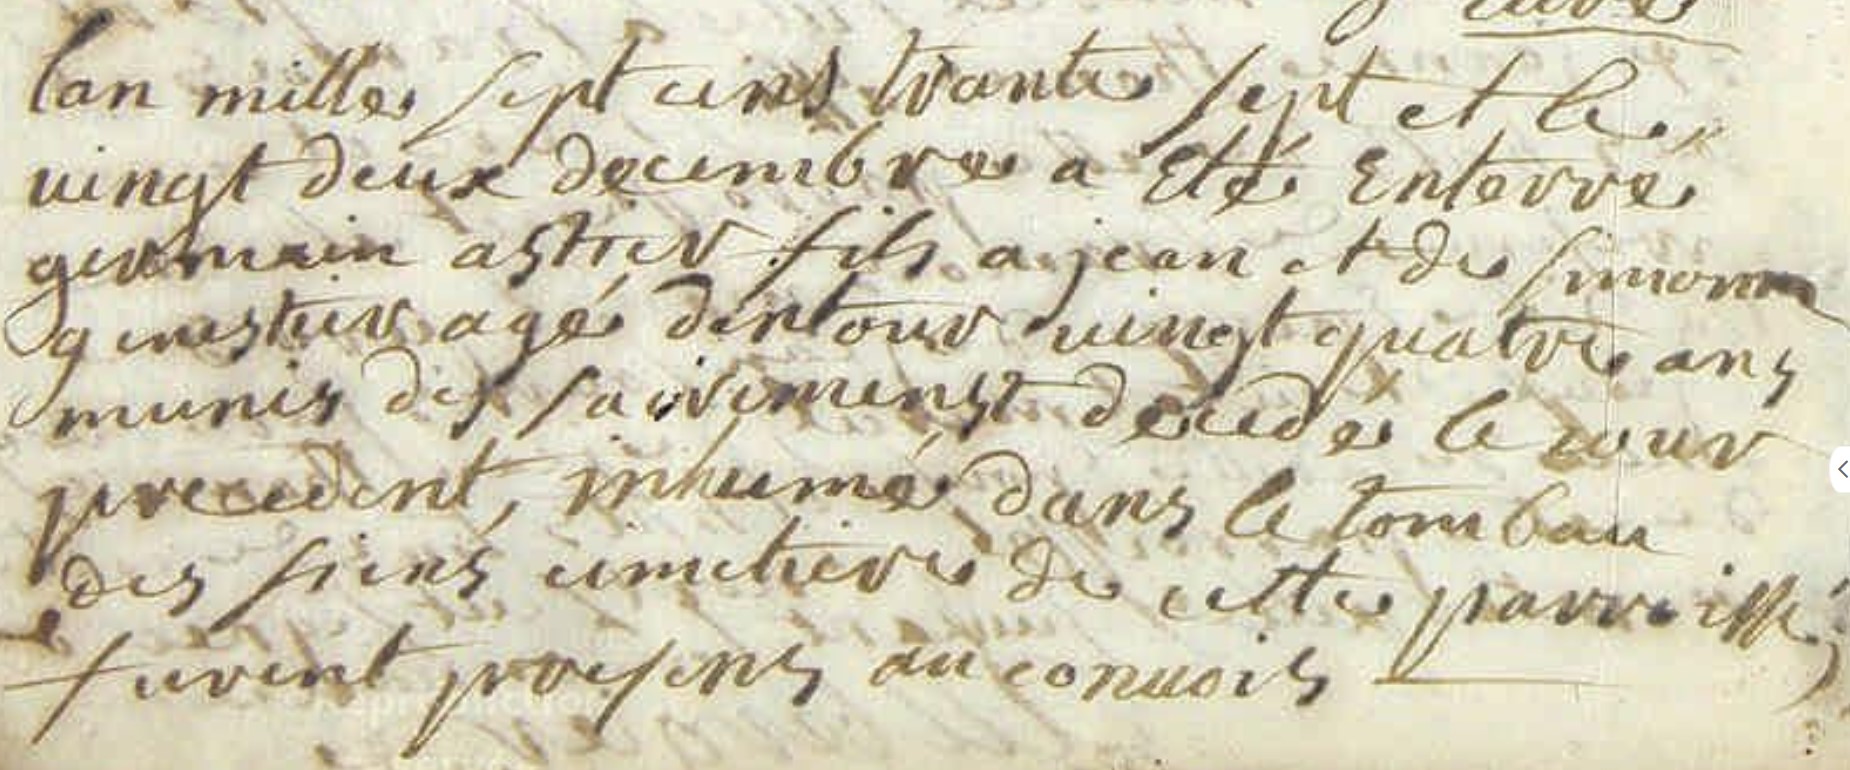 lan mille sept cens trante sept et le
vingt deux decembre a eté enterré
germain astier fils a jean et de simonne
ginestier agé dentour vingt quatre ans
munis des sacremenst decedé le jour
precedent, inhumé dans le tombau
des siens cimetiere de cette parroisse
furent presens au convois